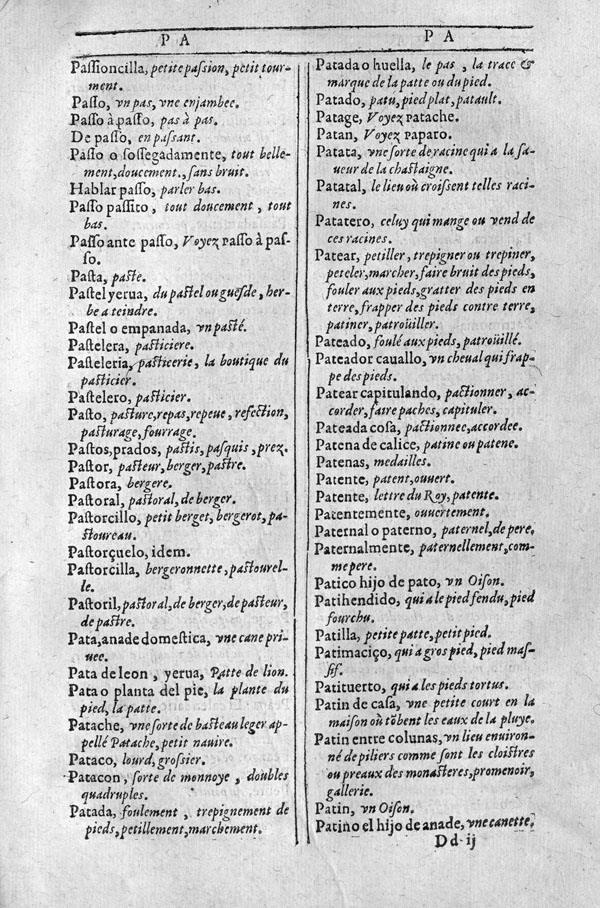 P A
Passioncilla, petite passion, petit tour-
ment.
Passo, vn pas, vne enjambee.
Passo à passo, pas à pas.
De passo, en passant.
Passo o sossegadamente, tout belle-
ment, doucement, sans bruit.
Hablar passo, parler bas.
Passo passito, tout doucement, tout
bas.
Passo ante passo, Voyez passo à pas-
so.
Pasta, paste.
Pastel yerua, du pastel ou guesde, her-
be a teindre.
Pastel o empanada, vn pasté.
Pastelera, pasticiere.
Pasteleria, pasticerie, la boutique du
pasticier.
Pastelero, pasticier.
Pasto, pasture, repas, repeue, refection,
pasturage, fourrage.
Pastos, prados, pastis, pasquis, prez.
Pastor, pasteur, berger, pastre.
Pastora, bergere.
Pastoral, pastoral, de berger.
Pastorcillo, petit berget, bergerot, pa-
stoureau.
Pastorçuelo, idem.
Pastorcilla, bergeronnette, pastourel-
le.
Pastoril, pastoral, de berger, de pasteur,
de pastre.
Pata, anade domestica, vne cane pri-
uee.
Pata de leon, yerua, Patte de lion.
Pata o planta del pie, la plante du
pied, la patte.
Patache, vne sorte de basteau leger ap-
pellé Patache, petit nauire.
Pataco, lourd, grossier.
Patacon, sorte de monnoye, doubles
quadruples.
Patada, foulement, trepignement de
pieds, petillement, marchement.
P A
Patada o huella, le pas, la trace &
marque de la patte ou du pied.
Patado, patu, pied plat, patault.
Patage, Voyez patache.
Patan, Voyez paparo.
Patata, vne sorte de racine qui a la sa-
ueur de la chastaigne.
Patatal, le lieu où croissent telles raci-
nes.
Patatero, celuy qui mange ou vend de
ces racines.
Patear, petiller, trepigner ou trepiner,
peteler, marcher, faire bruit des pieds,
fouler aux pieds, gratter des pieds en
terre, frapper des pieds contre terre,
patiner, patroüiller.
Pateado, foulé aux pieds, patroüillé.
Pateador cauallo, vn cheual qui frap-
pe des pieds.
Patear capitulando, pactionner, ac-
corder, faire paches, capituler.
Pateada cosa, pactionnee, accordee.
Patena de calice, patine ou patene.
Patenas, medailles.
Patente, patent, ouuert.
Patente, lettre du Roy, patente.
Patentemente, ouuertement.
Paternal o paterno, paternel, de pere.
Paternalmente, paternellement, com-
me pere.
Patico hijo de pato, vn Oison.
Patihendido, qui a le pied fendu, pied
fourchu.
Patilla, petite patte, petit pied.
Patimaciço, qui a gros pied, pied mas-
sif.
Patituerto, qui a les pieds tortus.
Patin de casa, vne petite court en la
maison où tõbent les eaux de la pluye.
Patin entre colunas, vn lieu enuiron-
né de piliers comme sont les cloistres
ou preaux des monasteres, promenoir,
gallerie.
Patin, vn Oison.
Patino el hijo de anade, vne canette.
Dd ij